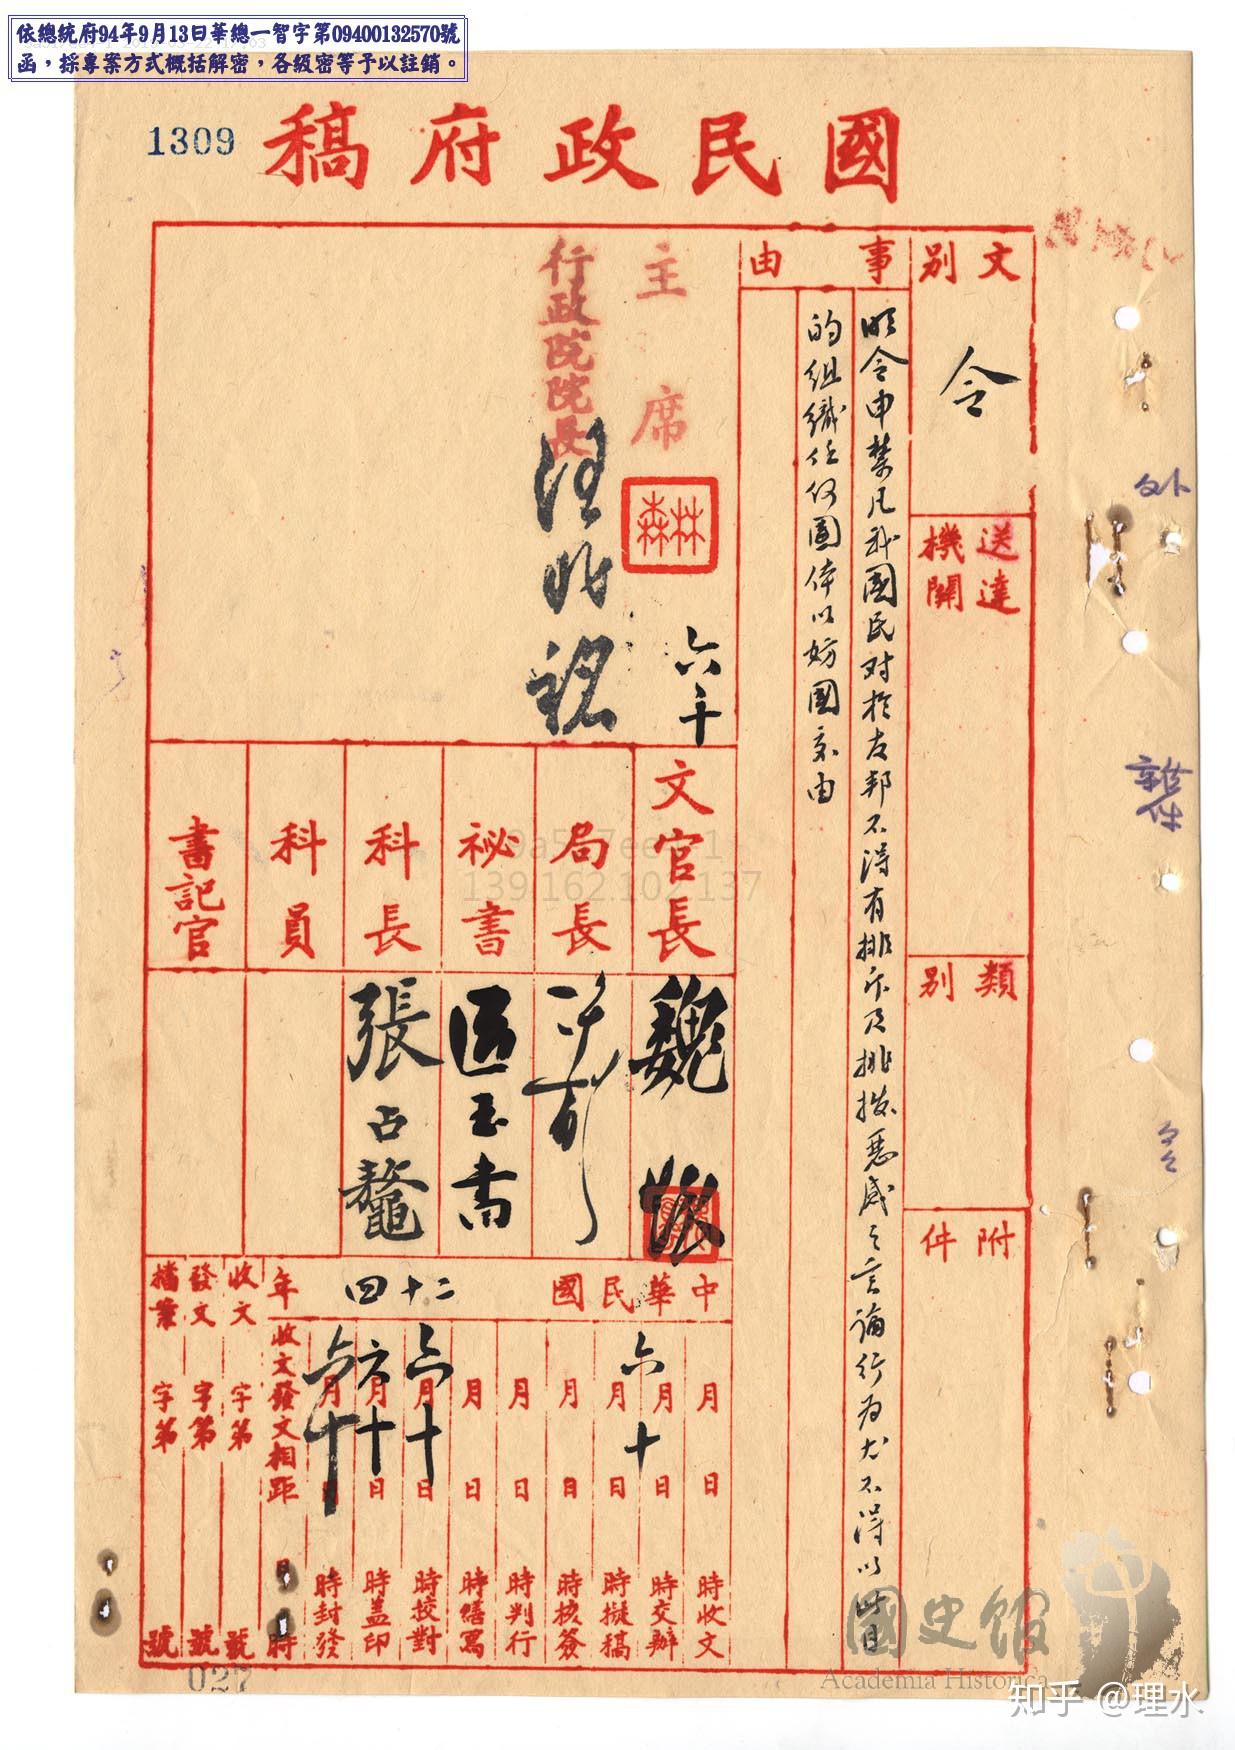 依總統府94年9月13日華總一智字第09400132570號
函，採專案方式概括解密，各級密等予以註銷。
1309
國民政府稿
文別
令
送達機關
類別
附件
事由
明令申禁凡我國民对於友邦不得有排斥及挑撥惡感之言論行为尤不得以此目
的組織任何團体以妨國交由
主席
林森
六 十
行政院院長
汪兆銘
文官長
魏懷
局長
秘書
匡玉書
科長
張占鰲
科員
書記官
中華民國二十四年
月 日 時收文
月 日 時交辦
六月十日 時擬稿
月 日 時核簽
月 日 時判行
月 日 時繕寫
六月十日 時校對
六月十日 時蓋印
六月十日 時封發
收文發文相距 日 時
收文 字第 號
發文 字第 號
檔案 字第 號
外
雜件
027
139.162.102.137
國史館
Academia Historica
知乎 @理水